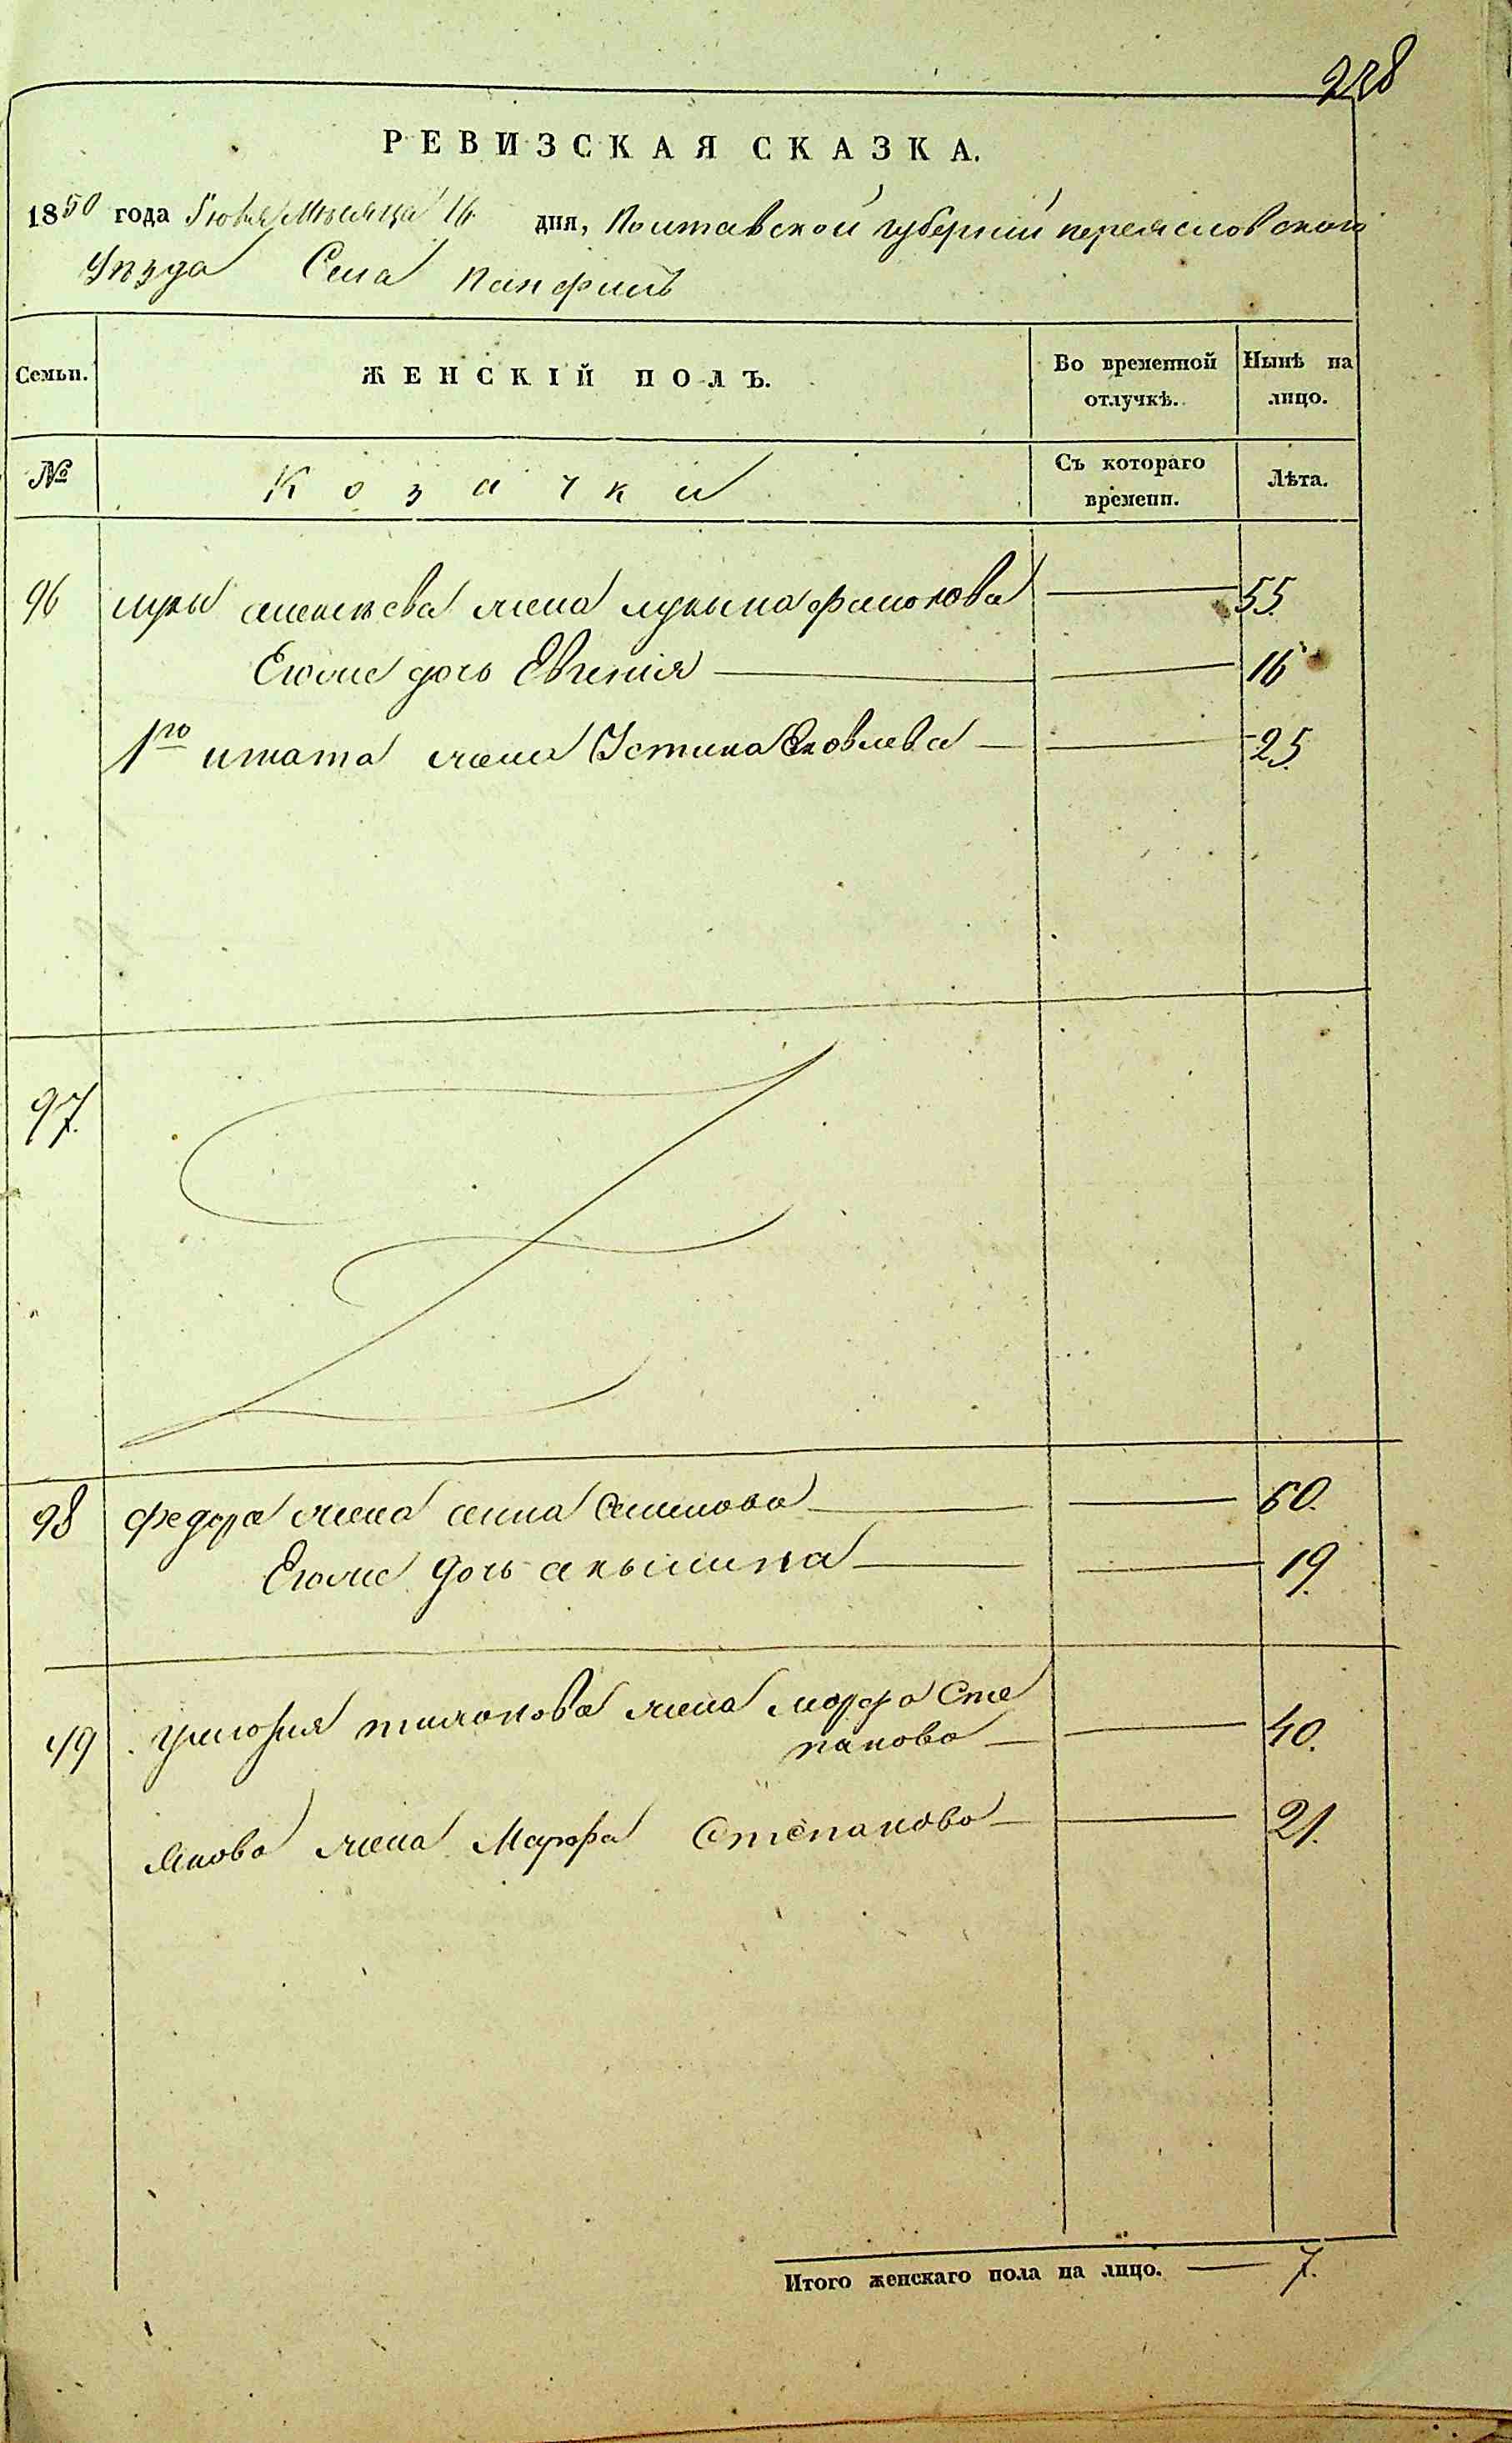 228
РЕВИЗСКАЯ СКАЗКА.
1850 года Июня Месяца 16 дня, Полтавской губернии переясловского
Уезда Села Панфилъ
Семьи. ЖЕНСКІЙ ПОЛЪ. Во временной отлучкѣ. Нынѣ на лицо.
№ Козачки Съ котораго времени. Лѣта.
96 луки алексѣева жена лукіна 55.
Єгоже дочь Евгенія 16
1го игната жена Устина Яковлева 25.
97.
98 федора жена анна 60.
Єгоже дочь акылина 19.
99 жена марфа Сте
панова 40.
Якова жена Марфа Степанова 21.
Итого женскаго пола на лицо. 7.